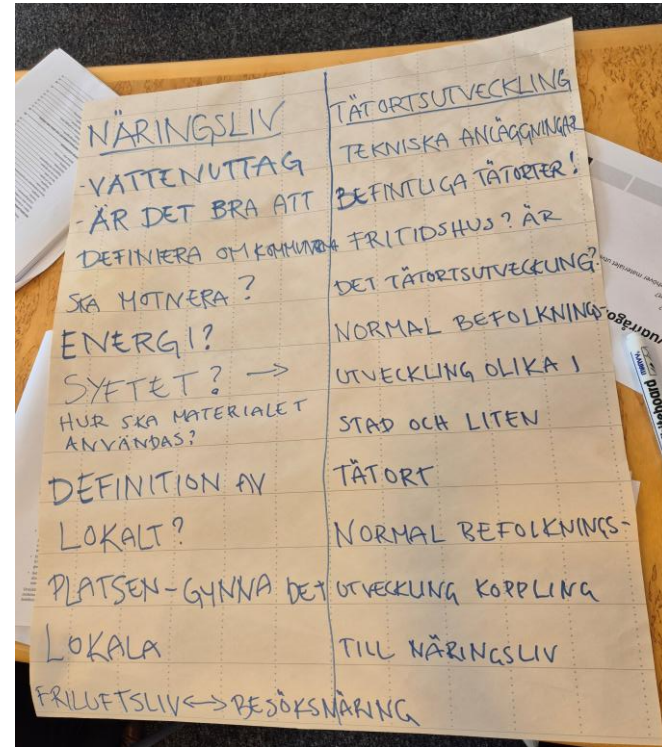 NÄRINGSLIV
-VATTENUTTAG
-ÄR DET BRA ATT
DEFINIERA OM KOMMUNERNA
SKA MOTIVERA?
ENERGI?
SYFTET? →
HUR SKA MATERIALET
ANVÄNDAS?
DEFINITION AV
LOKALT?
PLATSEN-GYNNA DET
LOKALA
FRILUFTSLIV<->BESÖKSNÄRING
TÄTORTSUTVECKLING
TEKNISKA ANLÄGGNINGAR
BEFINTLIGA TÄTORTER!
FRITIDSHUS? ÄR
DET TÄTORTSUTVECKLING?
NORMAL BEFOLKNINGS-
UTVECKLING OLIKA I
STAD OCH LITEN
TÄTORT
NORMAL BEFOLKNINGS-
UTVECKLING KOPPLING
TILL NÄRINGSLIV